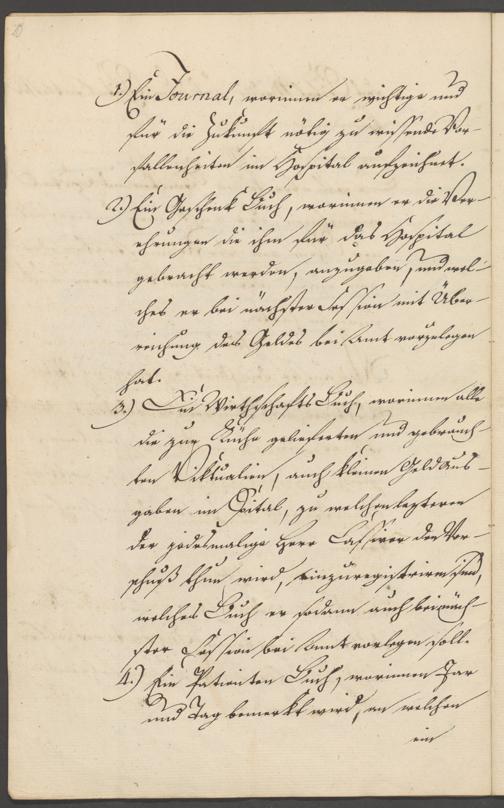 1.) Ein Journal, worinnen er wichtige und
für die Zukunft nötig zu wissende Vor-
fallenheiten im Hospital aufzeichnet.
2.) Ein Geschenk Buch, worinnen er die Ver-
ehrungen die ihm für das Hospital
gebracht werden, anzugeben, und wel-
ches er bei nächster Session mit Über-
reichung des Geldes bei Amt vorzulegen
hat.
3.) Ein Wirthschafts Buch, worinnen alle
die zur Küche gelieferten und gebrauch-
ten Viktualien, auch kleinen Geld Aus-
gaben im Spital, zu welchen lezteren
der jedesmalige Herr Cassirer den Vor-
schuß thun wird, einzuregistriren sind,
welches Buch er sodann auch bei näch-
ster Session bei Amt vorlegen soll.
4.) Ein Patienten Buch, worinnen Jar
und Tag bemerkt wird, an welchen
ein